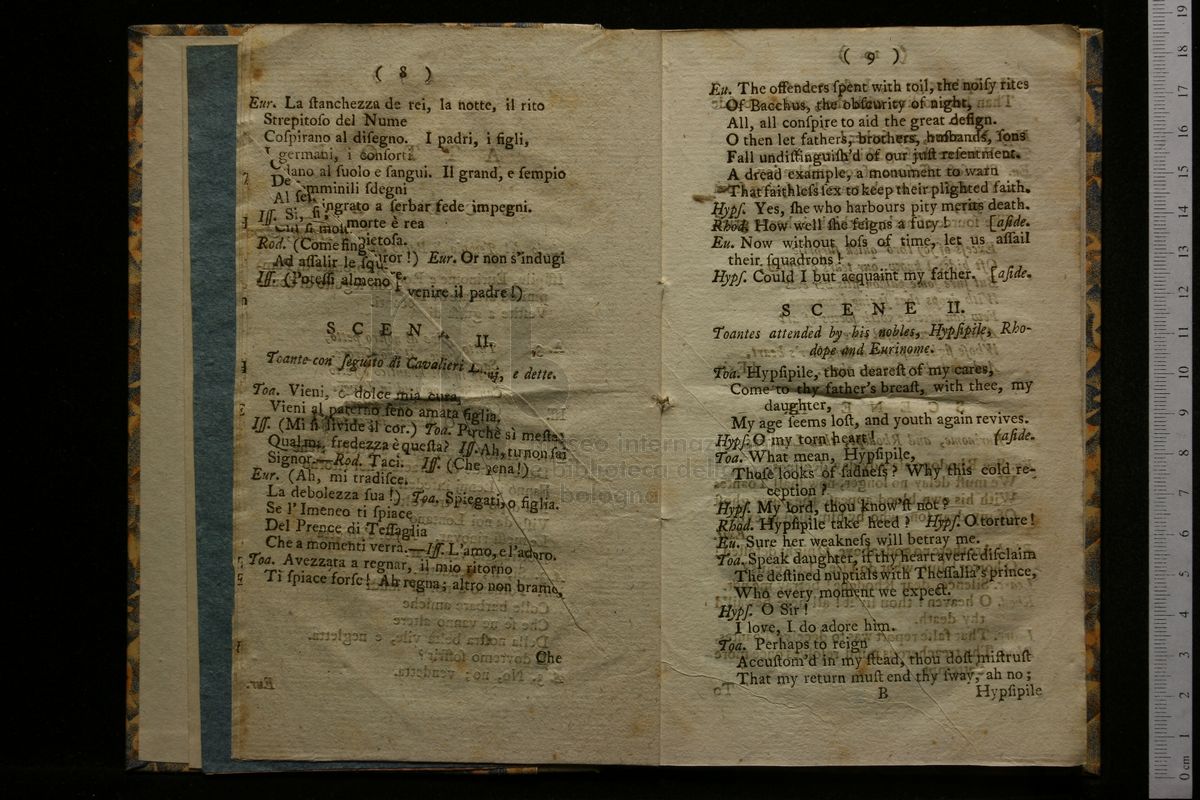 ( 8 )
Eur. La ſtanchezza de rei, la notte, il rito
Strepitoſo del Nume
Coſpirano al diſegno. I padri, i figli,
germani, i conſorti
al ſuolo e ſangui. Il grand, e ſempio
De
mminili ſdegni
Al ſeſ
ingrato a ſerbar fede impegni.
Iſſ. Si, ſi,
morte è rea
Rod. (Come fing
pietoſa.
uror!) Eur. Or non s'indugi
Ad aſſalir le ſqu
Iſſ. (Poteſſi almeno
venire il padre!)
SCENA II.
Toante con ſeguito di Cavalieri, e dette.
Toa. Vieni, o dolce mia cura,
Vieni al paterno ſeno amata figlia.
Iſſ. (Mi ſi divide il cor.) Toa. Perchè sì meſta?
Qual mi, fredezza è queſta? Iſſ. Ah, tu non ſai
Signor.—Rod. Taci. Iſſ. (Che pena!)
Eur. (Ah, mi tradiſce.
La debolezza ſua!) Toa. Spiegati, o figlia.
Se l'Imeneo ti ſpiace
Del Prence di Teſſaglia
Che a momenti verrà.—Iſſ. L'amo, e l'adoro.
Toa. Avezzata a regnar, il mio ritorno
Ti ſpiace forſe! Ah regna; altro non bramo,
Che
( 9 )
Eu. The offenders ſpent with toil, the noiſy rites
Of Bacchus, the obſcurity of night,
All, all conſpire to aid the great deſign.
O then let fathers, brothers, husbands, ſons
Fall undiſtinguiſh'd of our juſt reſentment.
A dread example, a monument to warn
That faithleſs ſex to keep their plighted faith.
Hypſ. Yes, ſhe who harbours pity merits death.
Rhod. How well ſhe feigns a fury! [aſide.
Eu. Now without loſs of time, let us aſſail
their ſquadrons!
Hypſ. Could I but acquaint my father. [aſide.
SCENE II.
Toantes attended by his nobles, Hypſipile, Rho-
dope and Eurinome.
Toa. Hypſipile, thou deareſt of my cares,
Come to thy father's breaſt, with thee, my
daughter,
My age ſeems loſt, and youth again revives.
Hypſ. O my torn heart! [aſide.
Toa. What mean, Hypſipile,
Thoſe looks of ſadneſs? Why this cold re-
ception?
Hypſ. My lord, thou know'ſt not?
Rhod. Hypſipile take heed? Hypſ. O torture!
Eu. Sure her weakneſs will betray me.
Toa. Speak daughter, if thy heart averſe diſclaim
The deſtined nuptials with Theſſalia's prince,
Who every moment we expect.
Hypſ. O Sir!
I love, I do adore him.
Toa. Perhaps to reign
Accuſtom'd in my ſtead, thou doſt miſtruſt
That my return muſt end thy ſway, ah no;
B Hypſipile
museo internaz
biblioteca della
bologna